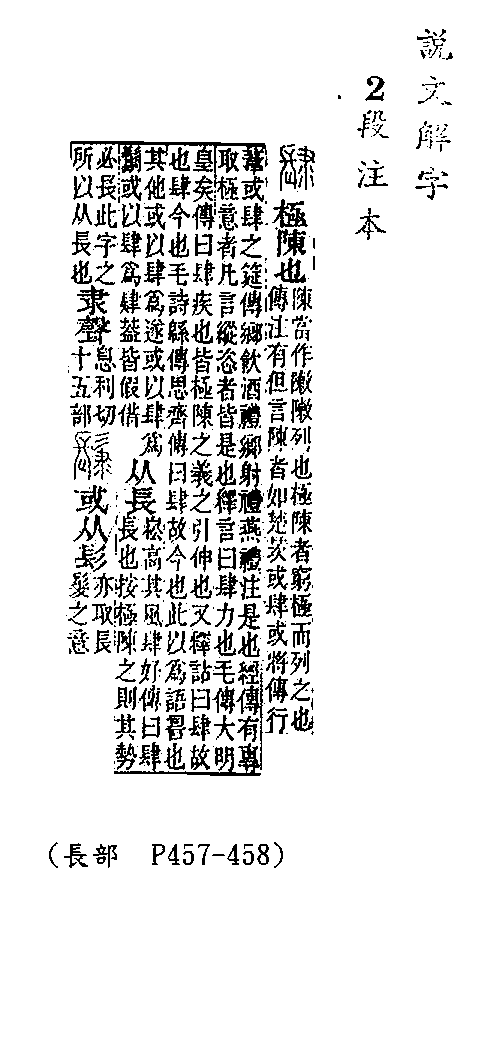 說文解字
2段注本
極陳也
陳當作敶敶列也極陳者窮極而列之也
傳注有但言陳者如楚茨或肆或將傳行
葦或肆之筵傳鄉飲酒禮鄉射禮燕禮注是也經傳有專
取極意者凡言縱恣者皆是也釋言曰肆力也毛傳大明
皇矣傳曰肆疾也皆極陳之義之引伸也又釋詁曰肆故
也肆今也毛詩緜傳思齊傳曰肆故今也此以爲語䛐也
其他或以肆爲遂或以肆爲
鬄或以肆爲肄葢皆假借
从長
崧高其風肆好傳曰肆
長也按極陳之則其勢
必長此字之
所以从長也
隶聲
息利切
十五部
或从髟
亦取長
髮之意
(長部 P457-458)